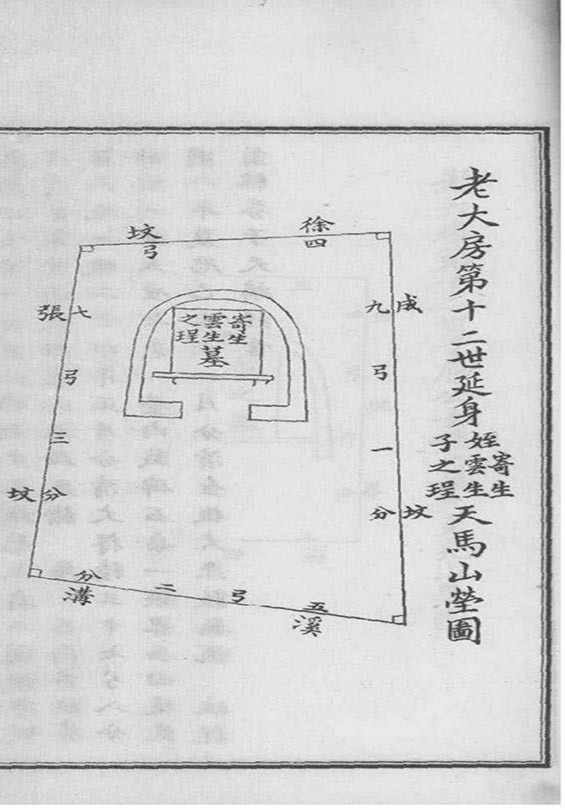 老大房第十二世延身
姪寄生
雲生
子之珵
天馬山塋圖
成坟
九弓一分
徐坟
四弓
寄生
雲生
之珵
墓
張坟
七弓三分
五弓二分
溪溝